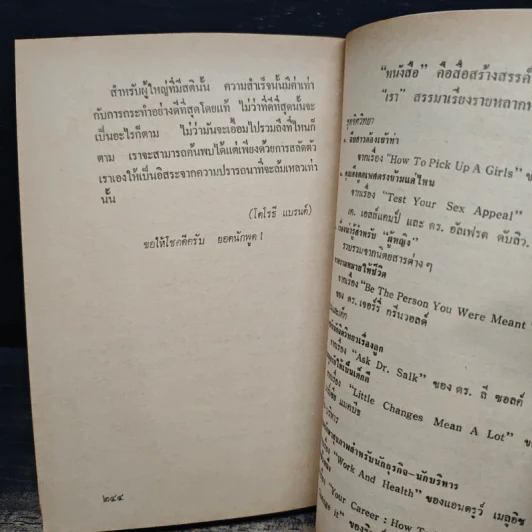 สำหรับผู้ใหญ่ที่มีสตินั้น ความสำเร็จนั้นมีค่าเท่า
กับการกระทำอย่างดีที่สุดโดยแท้ ไม่ว่าที่ดีที่สุดนั้นจะ
เป็นอะไรก็ตาม ไม่ว่ามันจะเอื้อมไปรวมถึงที่ไหนก็
ตาม เราจะสามารถค้นพบได้แต่เพียงด้วยการสลัดตัว
เราเองให้เป็นอิสระจากความปรารถนาที่จะล้มเหลวเท่า
นั้น
(โดโรธี แบรนด์)
ขอให้โชคดีครับ ยอดนักพูด !
๒๔๔
"หนังสือ" คือสื่อสร้างสรรค์
"เรา" สรรมาเรียงรายหลาก
จากเรื่อง "How To Pick Up A Girls"
จากเรื่อง "Test Your Sex Appeal"
เค. เอลล์แคมป์ และ ดร. อัลเฟรด ดับลิว.
รวบรวมจากนิตยสารต่าง ๆ
จากเรื่อง "Be The Person You Were Meant
ของ ดร. เจอร์รี่ กรีนวอลด์
จากเรื่อง "Ask Dr. Salk" ของ ดร. ลี ซอลค์
"Little Changes Mean A Lot" ของ
"Work And Health" ของแอนดรูว์
"Your Career : How To